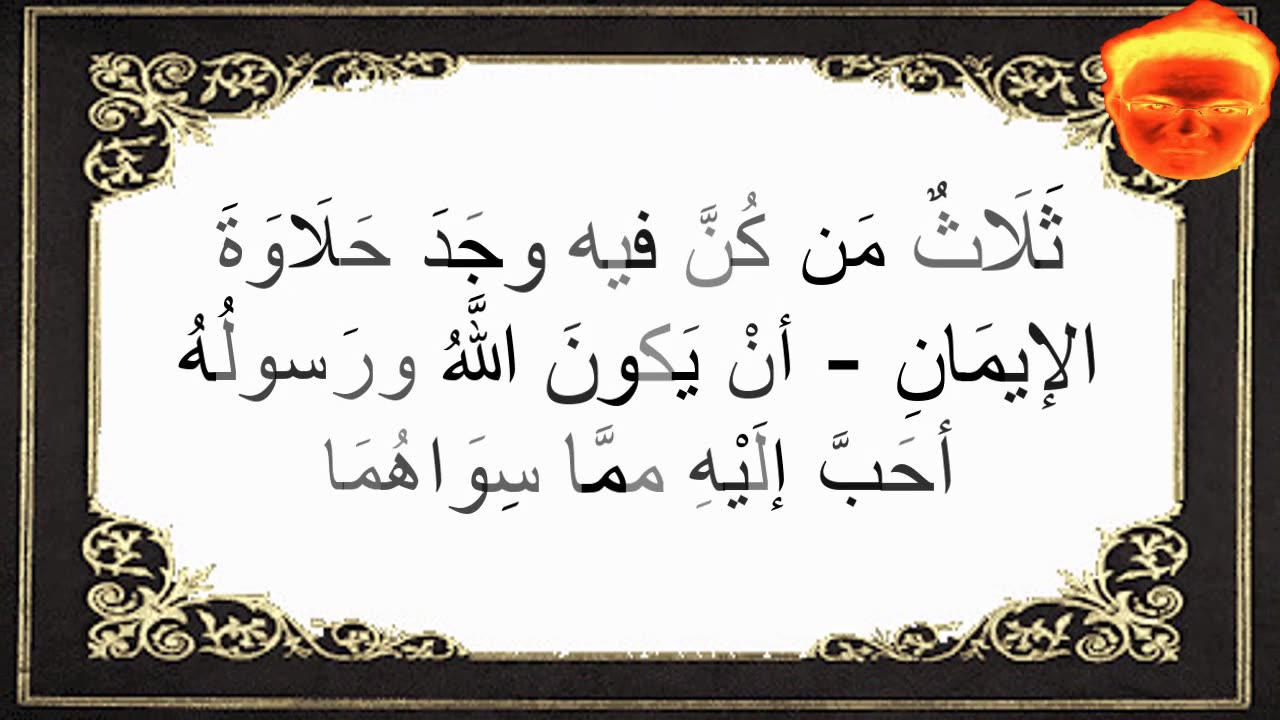 ثَلَاثٌ مَن كُنَّ فيه وجَدَ حَلَاوَةَ
الإيمَانِ - أنْ يَكونَ اللَّهُ ورَسولُهُ
أحَبَّ إلَيْهِ ممَّا سِوَاهُمَا